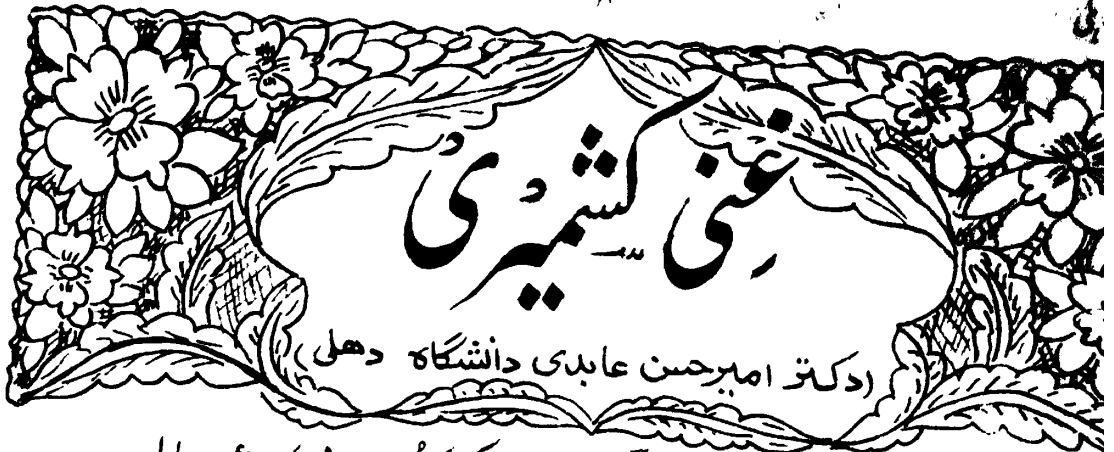 غنی کشمیری
ازدکتر امیرحسن عابدی دانشگاه دهلی